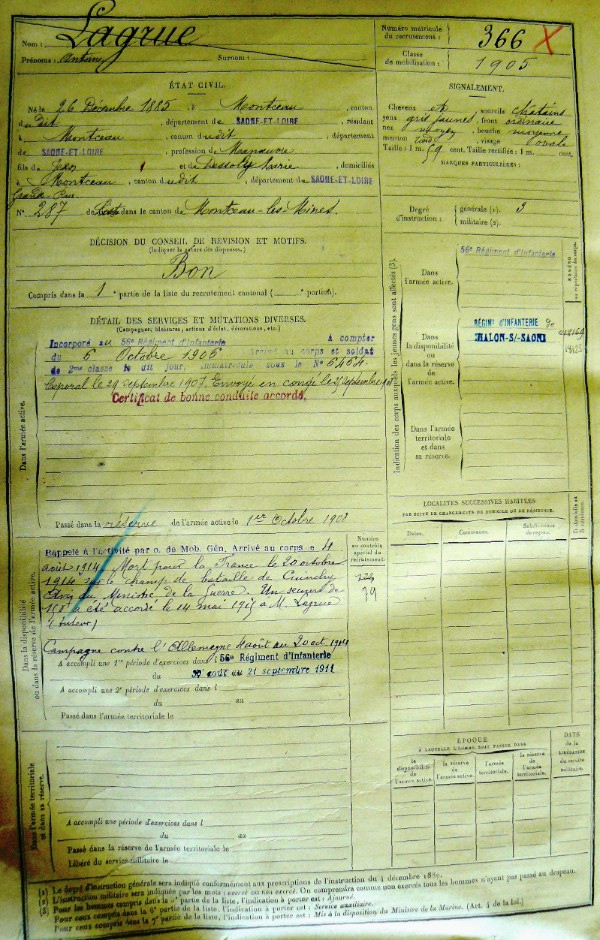 Nom : Lagrue
Prénoms : Antoine Surnom :
Numéro matricule du recrutement : 366 X
Classe de mobilisation : 1905
ÉTAT CIVIL.
Né le 26 Décembre 1885, à Montceau, canton
du dit, département de SAONE-ET-LOIRE, résidant
à Montceau, canton du dit, département
de SAONE-ET-LOIRE, profession de Manœuvre
fils de Jean et de Marie, domiciliés
à Montceau, canton du dit, département de SAONE-ET-LOIRE
N° 287 de dans le canton de Montceau-les-Mines.
SIGNALEMENT.
Cheveux et sourcils châtains
yeux gris jaunes, front ordinaire
nez, bouche moyenne
menton rond, visage ovale
Taille : 1 m. 59 cent. Taille rectifiée : 1 m. cent.
MARQUES PARTICULIÈRES :
Degré d'instruction : générale (1). 3
militaire (2).
DÉCISION DU CONSEIL DE RÉVISION ET MOTIFS.
(Indiquer la nature des dispenses.)
Bon
Compris dans la 1 e partie de la liste du recrutement cantonal ( portion).
DÉTAIL DES SERVICES ET MUTATIONS DIVERSES.
(Campagnes, blessures, actions d'éclat, décorations, etc.)
Dans l'armée active.
Incorporé au 56e Régiment d'Infanterie à compter
du 6 Octobre 1906 Arrivé au corps et soldat
de 2me classe le dit jour, immatriculé sous le N° 5454
Caporal le 29 septembre 1907. Envoyé en congé le septembre
Certificat de bonne conduite accordé.
Passé dans la réserve de l'armée active le 1er Octobre 1908
Indication des corps auxquels les jeunes gens sont affectés (3).
Dans l'armée active.
56e Régiment d'Infanterie
Dans la disponibilité ou dans la réserve de l'armée active.
RÉGINT D'INFANTERIE
CHALON-S/-SAONE
Dans l'armée territoriale et dans sa réserve.
Dans la disponibilité ou dans la réserve de l'armée active.
Rappelé à l'activité par o. de Mob. Gén. Arrivé au corps le 4
août 1914. Mort pour la France le 20 octobre
1914 sur le champ de bataille de Cuinchy
Avis du Ministre de la Guerre. Un secours de
a été accordé le 14 mai 1915 à M. Lagrue
Campagne contre l'Allemagne 4 août au 20 oct. 1914
A accompli une 1re période d'exercices dans l 56e Régiment d'Infanterie
du 30 août au 21 septembre 1911
A accompli une 2e période d'exercices dans l
du au
Passé dans l'armée territoriale le
Numéro au contrôle spécial du recrutement.
79
LOCALITÉS SUCCESSIVES HABITÉES
PAR SUITE DE CHANGEMENTS DE DOMICILE OU DE RÉSIDENCE.
Dates. Communes. Subdivisions de région.
Dans l'armée territoriale et dans sa réserve.
A accompli une période d'exercices dans l
du au
Passé dans la réserve de l'armée territoriale le
Libéré du service militaire le
ÉPOQUE
À LAQUELLE L'HOMME DOIT PASSER DANS
la disponibilité de l'armée active. la réserve de l'armée active. l'armée territoriale. la réserve de l'armée territoriale.
DATE de la LIBÉRATION du service militaire.
(1) Le degré d'instruction générale sera indiqué conformément aux prescriptions de l'instruction du 4 décembre 1889.
(2) L'instruction militaire sera indiquée par les mots : exercé ou non exercé. On comprendra comme non exercés tous les hommes n'ayant pas passé au drapeau.
(3) Pour les hommes compris dans la partie de la liste, l'indication à porter est : Ajourné.
Pour ceux compris dans la 6e partie de la liste, l'indication à porter est : Service auxiliaire.
Pour ceux compris dans la 7e partie de la liste, l'indication à porter est : Mis à la disposition du Ministre de la Marine. (Art. 4 de la loi.)